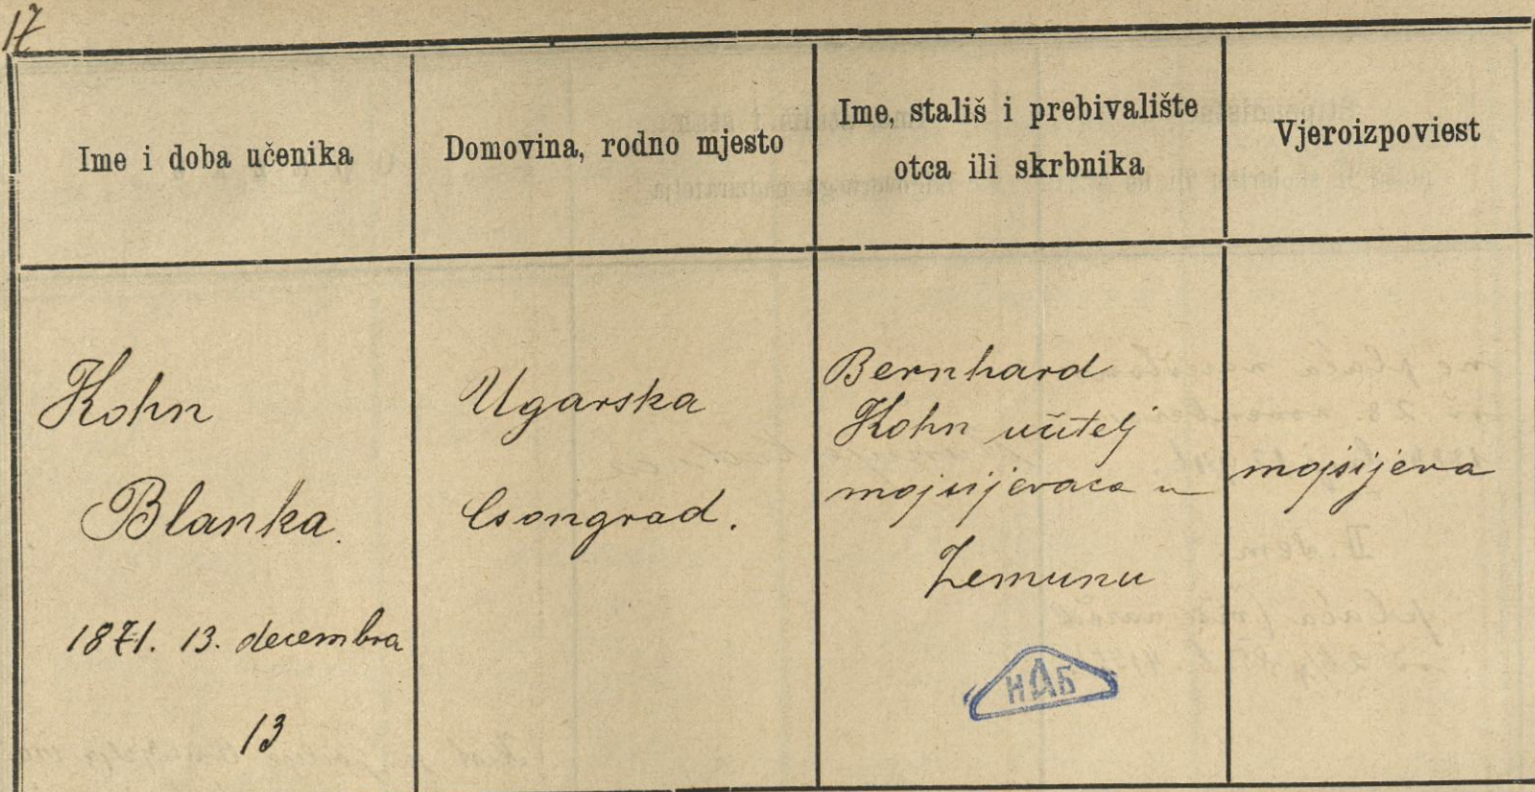 17
Ime i doba učenika
Domovina, rodno mjesto
Ime, stališ i prebivalište
otca ili skrbnika
Vjeroizpoviest
Kohn
Blanka.
1871. 13. decembra
13
Ugarska
Csongrad.
Bernhard
Kohn učitelj
mojsijevaca u
Zemunu
НАБ
mojsijeva